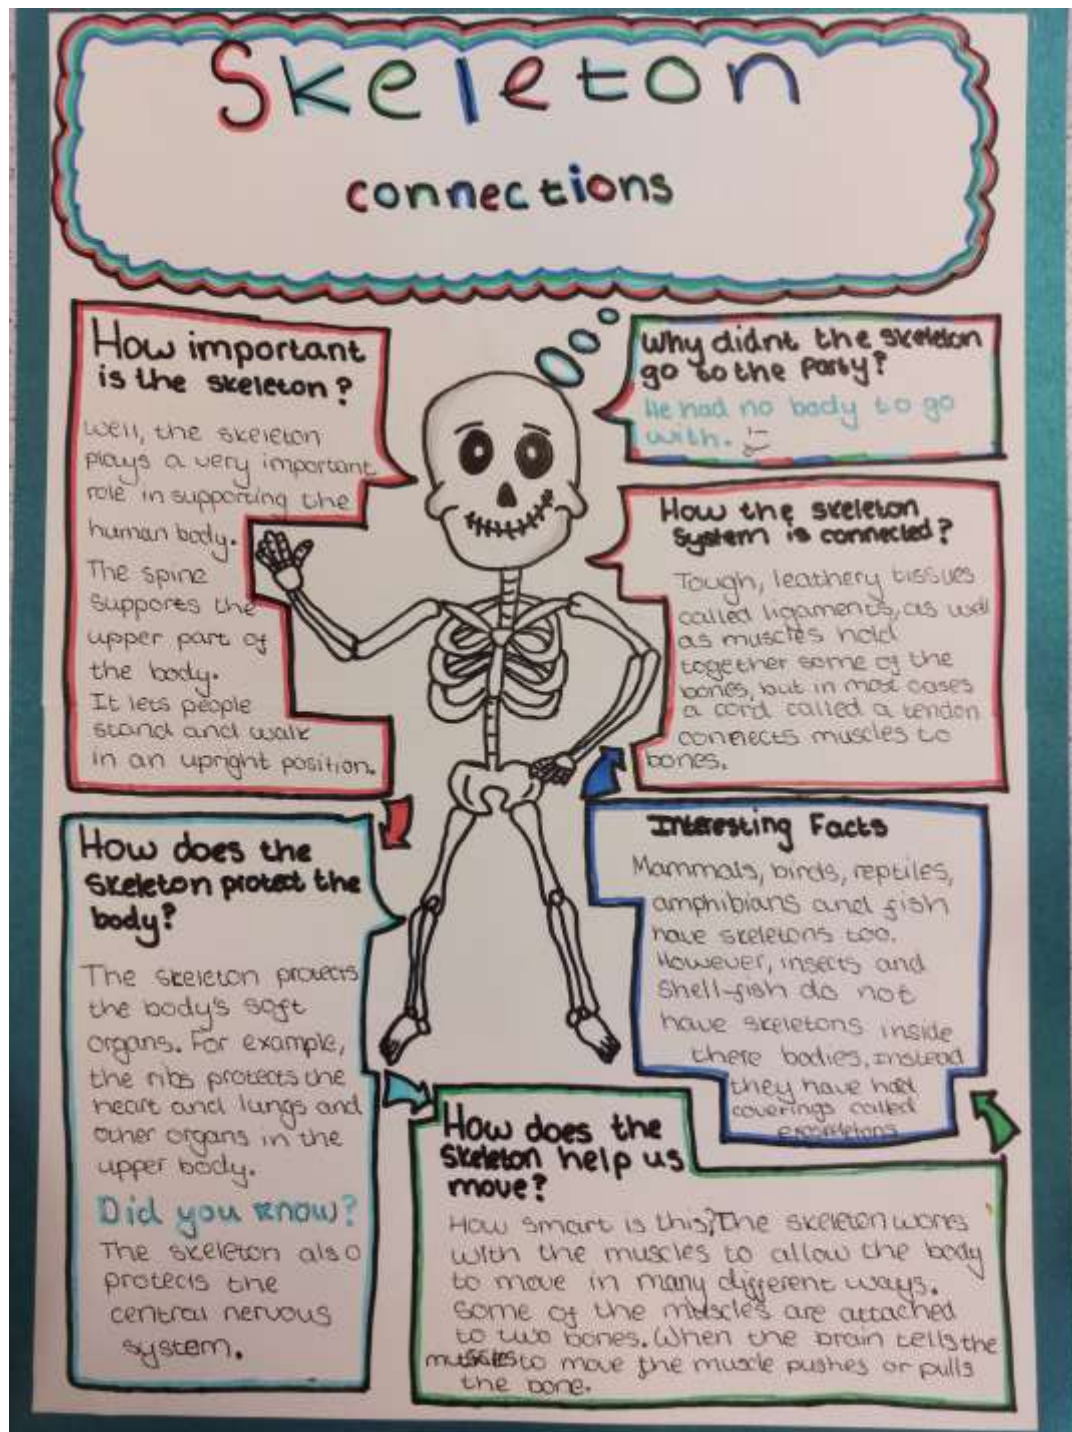 Skeleton
connections
How important
is the skeleton?
Well, the skeleton
plays a very important
role in supporting the
human body.
The spine
supports the
upper part of
the body.
It lets people
stand and walk
in an upright position.
Why didnt the skeleton
go to the party?
He had no body to go
with.
How the skeleton
system is connected?
Tough, leathery tissues
called ligaments, as well
as muscles hold
together some of the
bones, but in most cases
a cord called a tendon
connects muscles to
bones.
How does the
skeleton protect the
body?
The skeleton protects
the body's soft
organs. For example,
the ribs protects the
heart and lungs and
other organs in the
upper body.
Did you know?
The skeleton also
protects the
central nervous
system.
Interesting Facts
Mammals, birds, reptiles,
amphibians and fish
have skeletons too.
However, insects and
shell-fish do not
have skeletons inside
there bodies, instead
they have hard
coverings called
How does the
skeleton help us
move?
How smart is this? The skeleton works
with the muscles to allow the body
to move in many different ways.
Some of the muscles are attached
to two bones. When the brain tells the
muscles to move the muscle pushes or pulls
the bone.